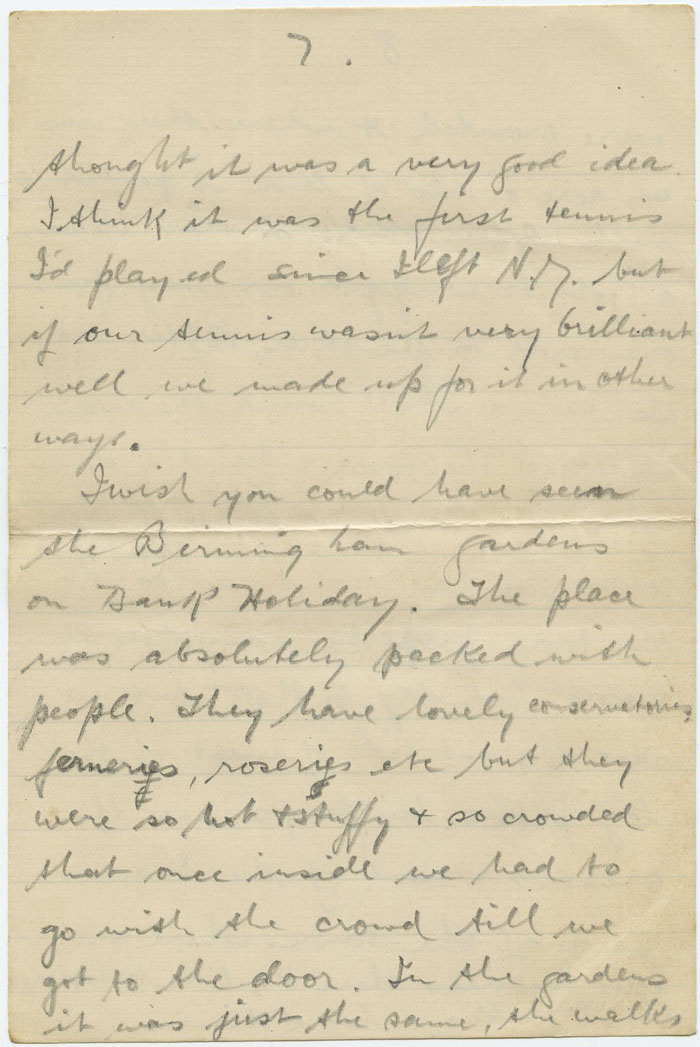 7.
thought it was a very good idea.
I think it was the first tennis
I'd played since I left N.Y. but
if our tennis wasn't very brilliant
well we made up for it in other
ways.
I wish you could have seen
the Birmingham gardens
on Bank Holiday. The place
was absolutely packed with
people. They have lovely conservatories,
ferneries, roseries etc but they
were so hot & stuffy & so crowded
that once inside we had to
go with the crowd till we
got to the door. In the gardens
it was just the same, the walks